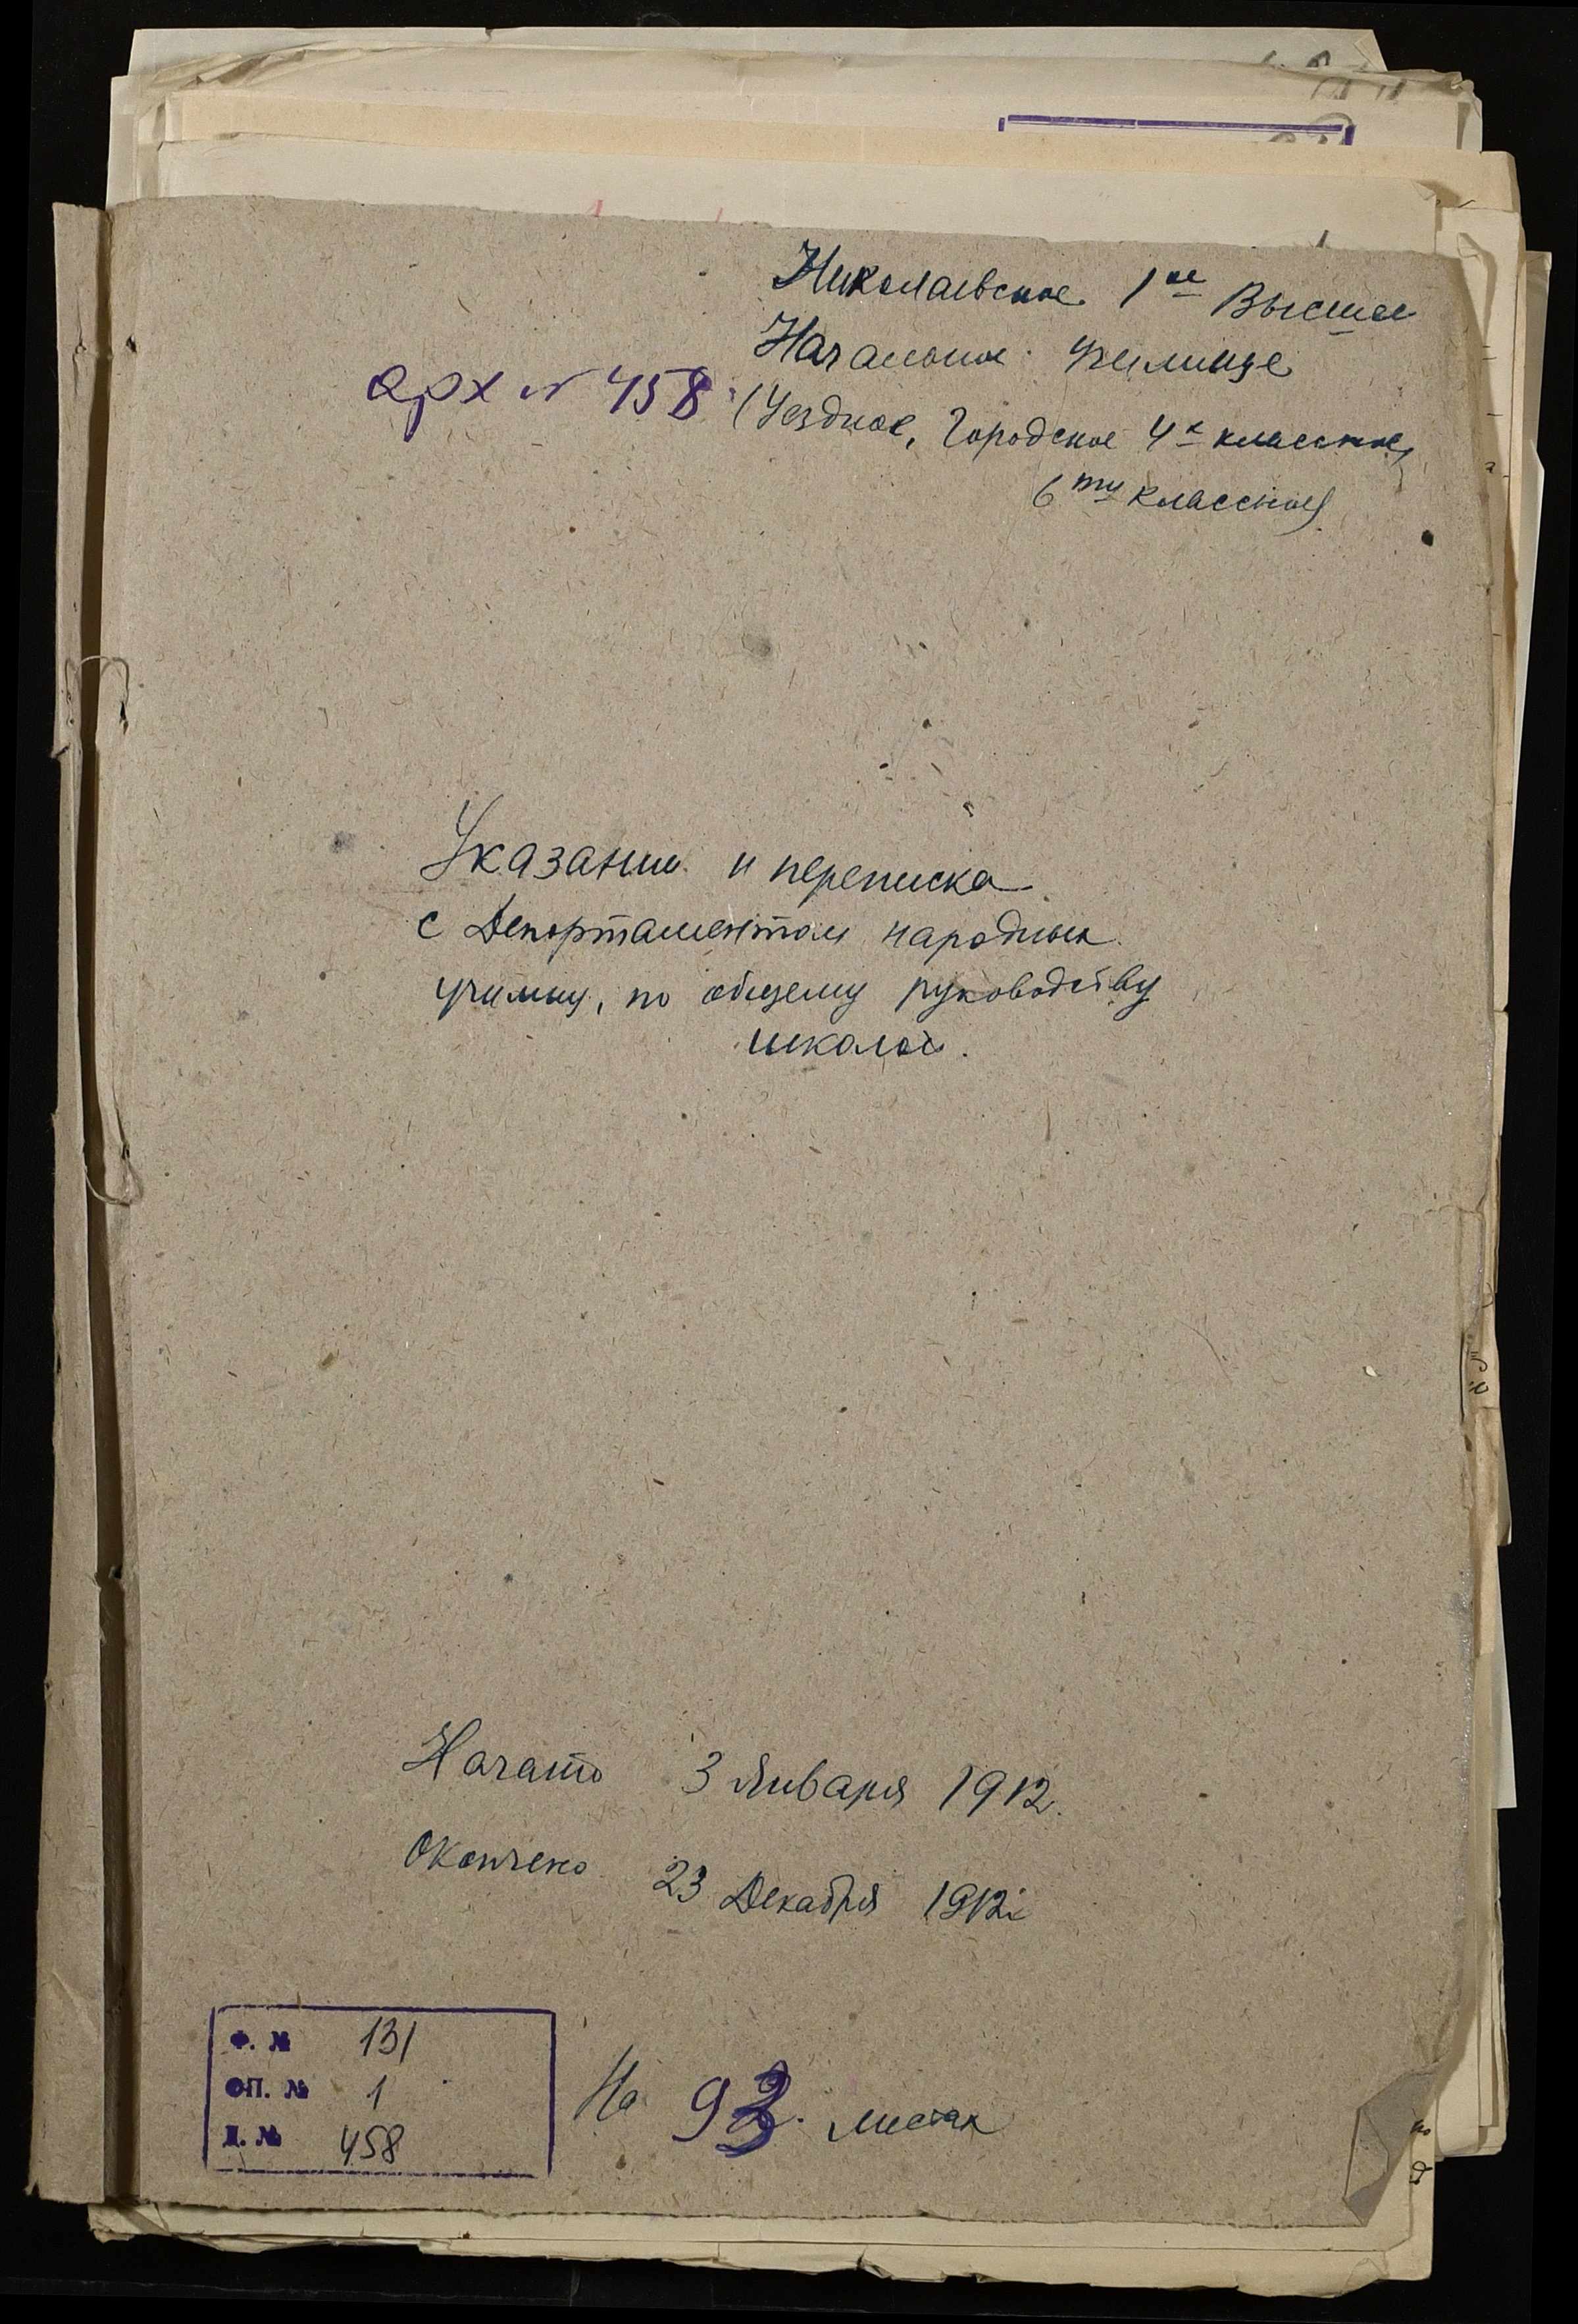 Николаевское 1ое Высшее
Начальное Училище
арх № 458
(Уездное, Городское 4х классное,
6ти классное)
Указания и переписка
с Департаментом народных
училищ, по общему руководству
школой.
Начато 3 Января 1912.
Окончено 23 Декабря 1912г
Ф. № 131
ОП. № 1
Д. № 458
На 93 листах